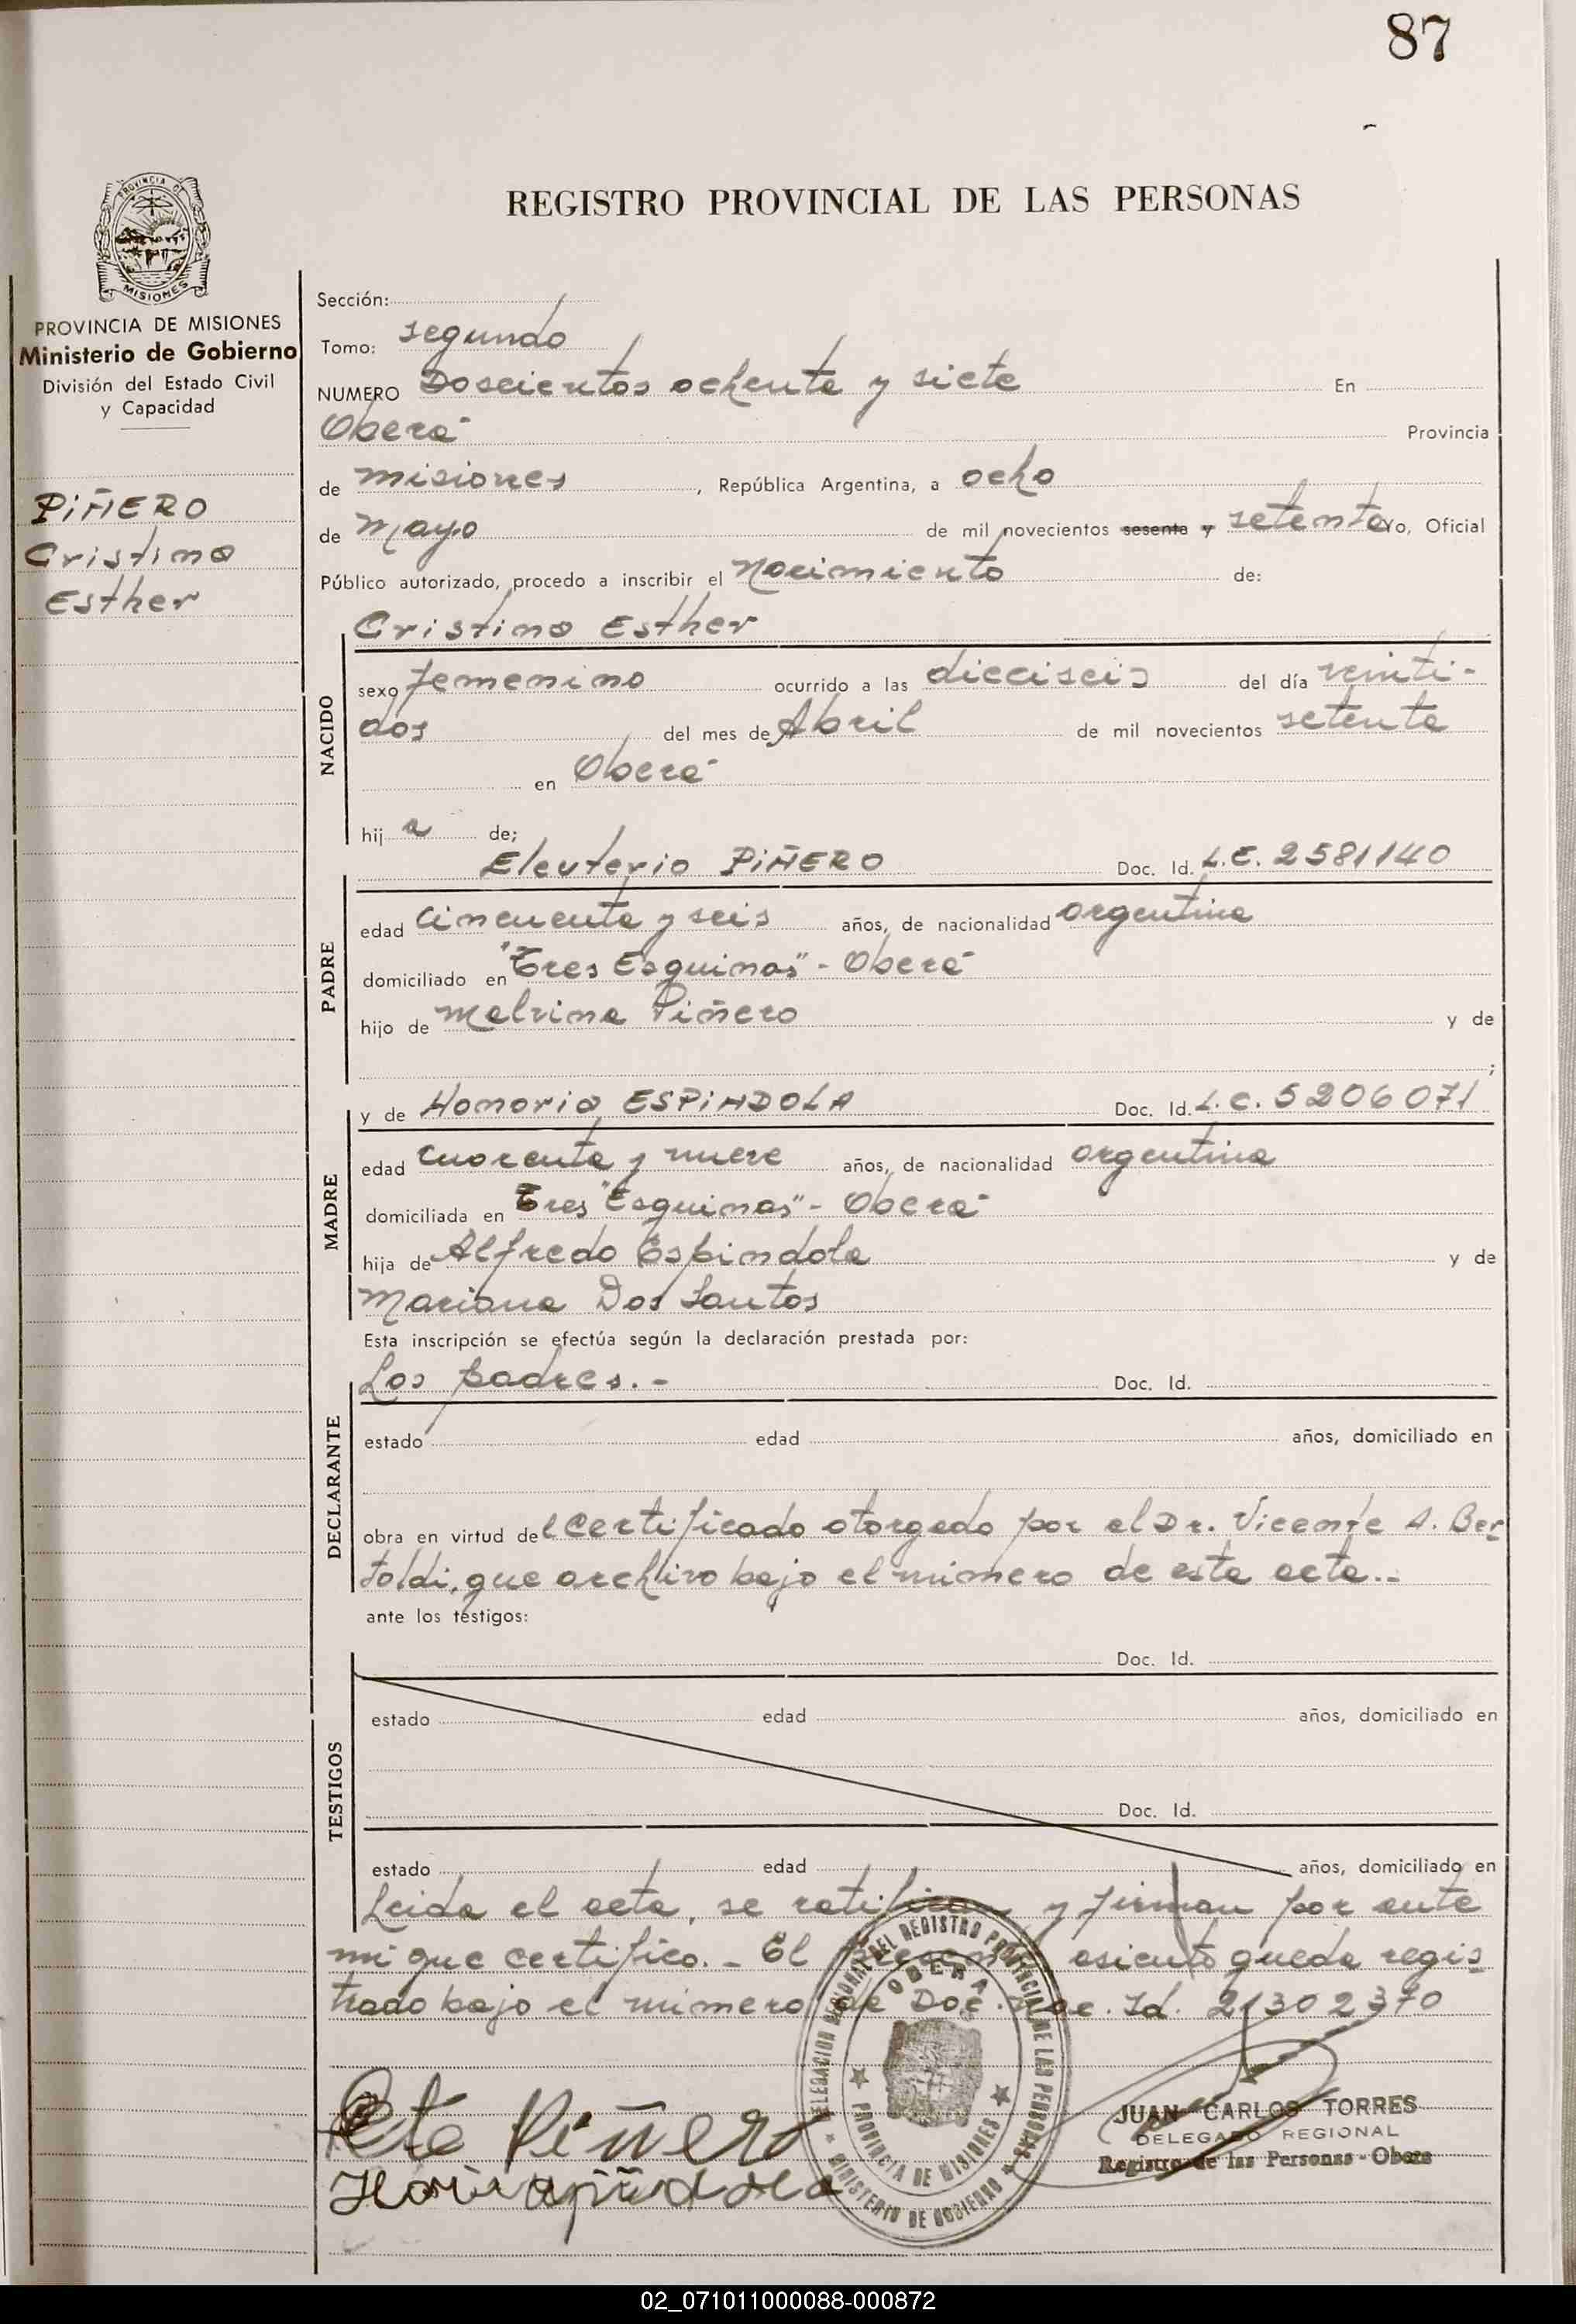 87
REGISTRO PROVINCIAL DE LAS PERSONAS
PROVINCIA DE
MISIONES
PROVINCIA DE MISIONES
Ministerio de Gobierno
División del Estado Civil
y Capacidad
PIÑERO
Cristina
Esther
Sección:
Tomo: segundo
NUMERO Doscientos ochenta y siete En
Oberá Provincia
de Misiones , República Argentina, a ocho
de Mayo de mil novecientos sesenta y setenta Yo, Oficial
Público autorizado, procedo a inscribir el Nacimiento de:
Cristina Esther
NACIDO
sexo femenino ocurrido a las dieciseis del día veinti-
dos del mes de Abril de mil novecientos setenta
en Oberá
hij a de;
Eleuterio PIÑERO Doc. Id. L.E. 2581140
PADRE
edad cincuenta y seis años, de nacionalidad argentina
domiciliado en "Tres Esquinas" - Oberá
hijo de Malvina Piñero y de
;
y de Honoria ESPINDOLA Doc. Id. L.C. 5206071
MADRE
edad cuarenta y nueve años, de nacionalidad argentina
domiciliada en Tres "Esquinas" - Oberá
hija de Alfredo Espindola y de
Mariana Dos Santos
Esta inscripción se efectúa según la declaración prestada por:
Los padres.- Doc. Id.
DECLARANTE
estado edad años, domiciliado en
obra en virtud del certificado otorgado por el Dr. Vicente A. Ber
toldi, que archivo bajo el número de esta acta.-
ante los testigos:
Doc. Id.
TESTIGOS
estado edad años, domiciliado en
Doc. Id.
estado edad años, domiciliado en
Leida el acta, se ratifican y firman por ante
mi que certifico.- El presente asiento queda regis
trado bajo el número de Doc. Nac. Id. 21302370
DELEGACION REGIONAL DEL REGISTRO PROVINCIAL DE LAS PERSONAS
OBERA
PROVINCIA DE MISIONES
MINISTERIO DE GOBIERNO
Piñero
JUAN CARLOS TORRES
DELEGADO REGIONAL
Registro de las Personas - Oberá
02_071011000088-000872